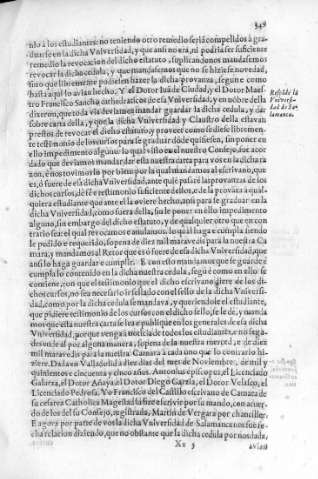 nio a los estudiantes: no teniendo otro remedio serían compelidos a gra-
duarse en la dicha Vniuersidad, y que ansi no era, ni podria ser suficiente
remedio la reuocacion del dicho estatuto, suplicandonos mandassemos
reuocar la dicha cedula, y que mandassemos que no se hiziesse nouedad,
sino que libremente pudiessen hazer la dicha prouança, segun e como
hasta aqui lo auian hecho. Y el Dotor de Ciudad, y el Dotor Maes-
tro Francisco Sancho cathedraticos de essa Vniuersidad, y en nōbre della
dixeron, que toda via deuiamos mandar guardar la dicha cedula, y da-
sobre carta della, y que la dicha Vniuersidad y Claustro della estauan
prestos de reuocar el dicho estatuto, y proueer como se diesse libremen-
te testimonio de los cursos para se graduar dōde quisiessen, sin poner en
ello impedimento alguno: lo qual visto en el nuestro Consejo, fue acor
dado que deuiamos mandar dar esta nuestra carta para vos en la dicha ra
zon, e nos tovimoslo por bien por la qual mandamos al escriuano, que
es, ò fuere de essa dicha Vniuersidad, ante quiē passarē las prouanças de los
dichos cursos, de fè e testimonio suficiente dellos, e de la prouāça à qual-
quiera estudiante que ante el la oviere hecho, ansi para se graduar en la
dicha Vniuersidad, como fuera della, sin le poner en ello impedimento
alguno, sin embargo del dicho estatuto, y de qualquier otro que en con
trario sea: el qual reuocamos e anulamos. lo qual haga e cumpla siendo
le pedido e requerido, so pena de diez mil marauedis para la nuestra Ca
mara, y mandamos al Retor que es ò fuere de essa dicha Vniuersidad, que
ansi lo haga guardar e cumplir. E con esso mandamos que se guarde e
cumpla lo contenido en la dicha nuestra cedula, segū e como en ello se
contiene, con que el testimonio que el dicho escriuano diere de los di-
chos cursos, no sea necesario ir sellado con el sello de la dicha Vniuersi-
dad, como por la dicha cedula se mandaua, y queriendole el estudiante,
que pidiere testimonio de los cursos con el dicho sello, se le dè, y manda
mos que esta nuestra carta se lea e publique en los generales de essa dicha
Vniuersidad, porque venga à noticia de todos los estudiantes. e no faga-
des ende al por alguna manera, so pena de la nuestra merced, e de diez
mil marauedis para la nuestra Camara à cada uno que lo contrario hi-
ziere. Dada en Valladolid à dias del mes de Nouiembre, de mil y
quinientos e cincuenta y cinco años. Antonius episcopus, el Licenciado
Galarza, el Dotor Anaya, el Dotor Diego Garcia, el Dotor Velasco, el
Licenciado Pedrosa. Yo Francisco del Castillo escriuano de Camara de
su cesarea Catholica Magestad la fize escriuir por su mando, con acuer-
do de los del su Consejo, registrada, Martin de Vergara por chanciller.
E agora por parte de vos la dicha Vniuersidad de Salamanca nos fue fe-
cha relacion diziendo, que no obstante que la dicha cedula por nos dada,
Xx 5
auian
348
Respōde la
Vniuersi-
dad de Sa-
lamanca.